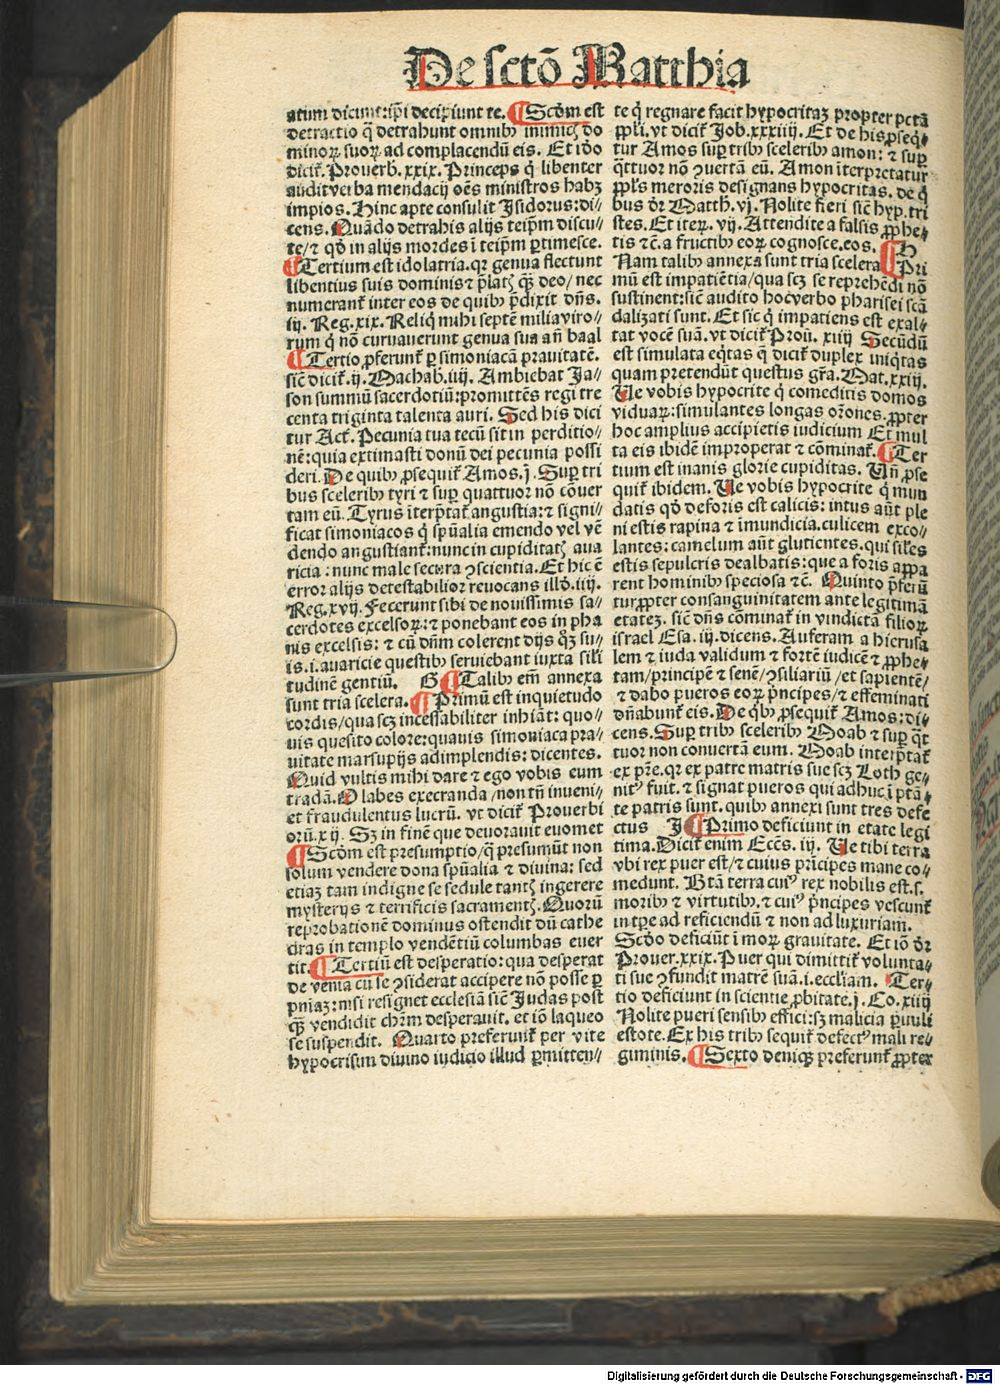 De sctō Matthia
atum dicunt: ip̄i decipiunt te. ¶ Scd̄m est
detractio q̄ detrahunt omnibꝰ inimicꝭ do
minoꝝ suoꝝ ad complacendū eis. Et iō
dicit̄. Prouerb. xxix. Princeps q̄ libenter
audit verba mendacij oēs ministros habꝫ
impios. Hinc apte consulit Isidorus: di⸗
cens. Quādo detrahis alijs teip̄m discu⸗
te/⁊ qd̓ in alijs mordes ī teip̄m ꝑtimesce.
¶ Tertium est idolatria. qꝛ genua flectunt
libentius suis dominis ⁊ p̄latꝭ qꝫ̄ deo/nec
numerant̄ inter eos de quibꝰ p̄dixit dn̄s.
iij. Reg. xix. Reliq̄ mihi septē milia viro⸗
rum q̄ nō curuauerunt genua sua an̄ baal
¶ Tertio ꝓferunt̄ ꝑ simoniacā prauitatē.
sic̄ dicit̄. ij. Machab. iiij. Ambiebat Ja⸗
son summū sacerdotiū: promittēs regi tre
centa triginta talenta auri. Sed his dici
tur Act̄. Pecunia tua tecū sit in perditio⸗
nē: quia extimasti donū dei pecunia possi
deri. De quibꝰ ꝓsequit̄ Amos. j. Suꝑ tri
bus sceleribꝰ tyri ⁊ suꝑ quattuor nō cōuer
tam eū. Tyrus īterp̄tat̄ angustia: ⁊ signi⸗
ficat simoniacos q̄ sp̄ualia emendo vel vē
dendo angustiant̄: nunc in cupiditatꝭ aua
ricia: nunc male secura ꝯscientia. Et hic ē
error alijs detestabilior reuocans illd̓. iiij.
Reg. xvij. Fecerunt sibi de nouissimis sa⸗
cerdotes excelsoꝝ: ⁊ ponebant eos in pha
nis excelsis: ⁊ cū dn̄m colerent dijs qꝫ su⸗
is. i. auaricie questibꝰ seruiebant iuxta sili
tudinē gentiū. G ¶ Talibꝰ em̄ annexa
sunt tria scelera. ¶ Primū est inquietudo
cordis/qua scꝫ incessabiliter inhiāt: quo⸗
uis quesito colore: quauis simoniaca pra⸗
uitate marsupijs adimplendis: dicentes.
Quid vultis mihi dare ⁊ ego vobis eum
tradā. O labes execranda/non tn̄ inueni⸗
et fraudulentus lucrū. vt dicit̄ Prouerbi
orū. xij. Sꝫ in finē que deuorauit euomet
¶ Scd̄m est presumptio/q̄ presumūt non
solum vendere dona sp̄ualia ⁊ diuina: sed
etiaꝫ tam indigne se sedule tantꝭ ingerere
mysterijs ⁊ terrificis sacramentꝭ. Quorū
reprobationē dominus ostendit dū cathe
dras in templo vendētiū columbas euer
tit. ¶ Tertiū est desperatio: qua desperat
de venia cū se ꝯsiderat accipere nō posse ꝑ
pn̄iaꝫ: nisi resignet ecclesiā sic̄ Judas post
qꝫ̄ vendidit chr̄m desperauit. et iō laqueo
se suspendit. Quarto preferunt̄ per vite
hypocrisim diuino iudicio illud ꝑmitten⸗
te q̄ regnare facit hypocritaꝫ propter pctā
pp̄li. vt dicit̄ Job. xxxiiij. Et de his ꝓseq̄⸗
tur Amos suꝑ tribꝰ sceleribꝰ amon: ⁊ suꝑ
q̄ttuor nō ꝯuertā eū. Amon īterpretatur
pp̄ls meroris designans hypocritas. de q̄
bus dr̄ Matth. vj. Nolite fieri sic̄ hyp. tri
stes. Et iteꝝ. vij. Attendite a falsis ꝓphe⸗
tis ⁊c̄. a fructibꝰ eoꝝ cognosce. eos. ¶ H
Nam talibꝰ annexa sunt tria scelera ¶ Pri
mū est impatiētia/qua scꝫ se reprehēdi nō
sustinent: sic̄ audito hoc verbo pharisei scā
dalizati sunt. Et sic q̄ impatiens est exal⸗
tat vocē suā. vt dicit̄ Proū. xiiij Secūdū
est simulata eq̄tas q̄ dicit̄ duplex iniq̄tas
quam pretendūt questus gr̄a. Mat. xxiij.
Ve vobis hypocrite q̄ comeditis domos
viduaꝝ: simulantes longas or̄ones. ꝓpter
hoc amplius accipietis iudicium Et mul
ta eis ibidē improperat ⁊ cōminat̄. ¶ Ter
tium est inanis glorie cupiditas. Vn̄ ꝓse
quit̄ ibidem. Ve vobis hypocrite q̄ mun
datis qd̓ deforis est calicis: intus aūt ple
ni estis rapina ⁊ īmundicia. culicem exco⸗
lantes: camelum aūt glutientes. qui siles
estis sepulcris dealbatis: que a foris appa
rent hominibꝰ speciosa ⁊c̄. Quinto p̄ferū
tur ꝓpter consanguinitatem ante legitimā
etatez. sic̄ dn̄s cōminat̄ in vindictā filioꝝ
israel Esa. iij. dicens. Auferam a hierusa
lem ⁊ iuda validum ⁊ fortē iudicē ⁊ ꝓphe⸗
tam/principē ⁊ senē/ꝯsiliariū/et sapientē/
⁊ dabo pueros eoꝝ p̄ncipes/⁊ effeminati
dn̄abunt̄ eis. De q̄bꝰ ꝓsequit̄ Amos: di⸗
cens. Suꝑ tribꝰ sceleribꝰ Moab ⁊ suꝑ q̄t
tuor non conuertā eum. Moab interp̄tat̄
ex pr̄e. qꝛ ex patre matris sue scꝫ Loth ge⸗
nitꝰ fuit. ⁊ signat pueros qui adhuc ī ptā⸗
te patris sunt. quibꝰ annexi sunt tres defe
ctus J ¶ Primo deficiunt in etate legi
tima. Dicit̄ enim Ecc̄s. iij. Ve tibi terra
vbi rex puer est/⁊ cuius prīcipes mane co⸗
medunt. Btā terra cuiꝰ rex nobilis est. s.
moribꝰ ⁊ virtutibꝰ. ⁊ cuiꝰ p̄ncipes vescunt̄
in tꝑe ad reficiendū ⁊ non ad luxuriam.
Scd̓o deficiūt ī moꝝ grauitate. Et iō dr̄
Prouer. xxix. Puer qui dimittit̄ volunta⸗
ti sue ꝯfundit matrē suā. i. eccl̓iam. Ter⸗
tio deficiunt in scientie ꝓbitate. j. Co. xiiij
Nolite pueri sensibꝰ effici: sꝫ malicia ꝑuuli
estote. Ex his tribꝰ sequit̄ defectꝰ mali re⸗
giminis. ¶ Sexto deniqꝫ preferunt̄ ꝓpter
Digitalisierung gefördert durch die Deutsche Forschungsgemeinschaft - DFG